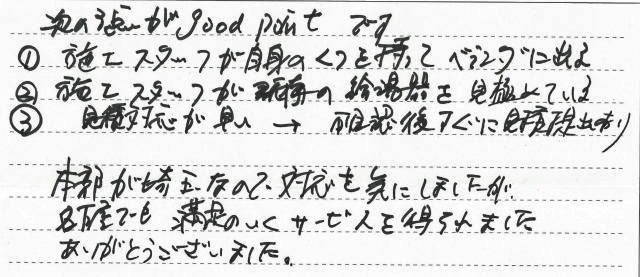 次の点がgood pointです
① 施工スタッフが自身のくつを持ってベランダに出る
② 施工スタッフが の給湯器を見極めている
③ 見積対応が早い → 確認後すぐに見積提出あり
本部が埼玉なので対応を気にしましたが、
名古屋でも満足のいくサービスを得られました
ありがとうございました。